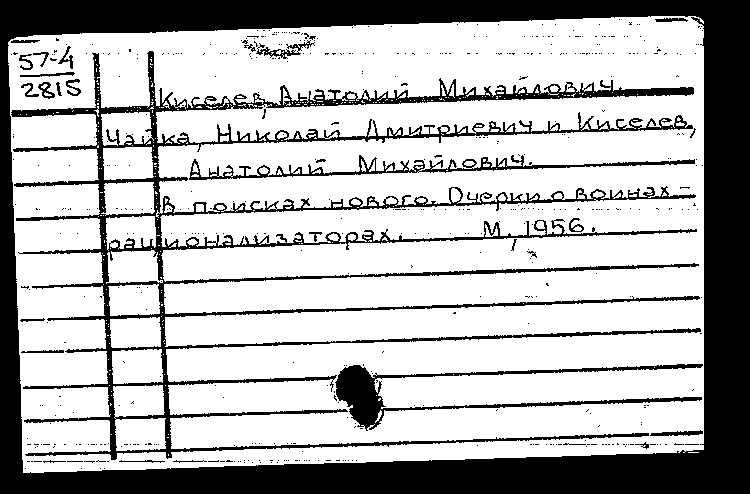 57-4
2815
Киселев, Анатолий Михайлович.
Чайка, Николай Дмитриевич и Киселев,
Анатолий Михайлович.
В поисках нового. Очерки о воинах-
рационализаторах. М., 1956.